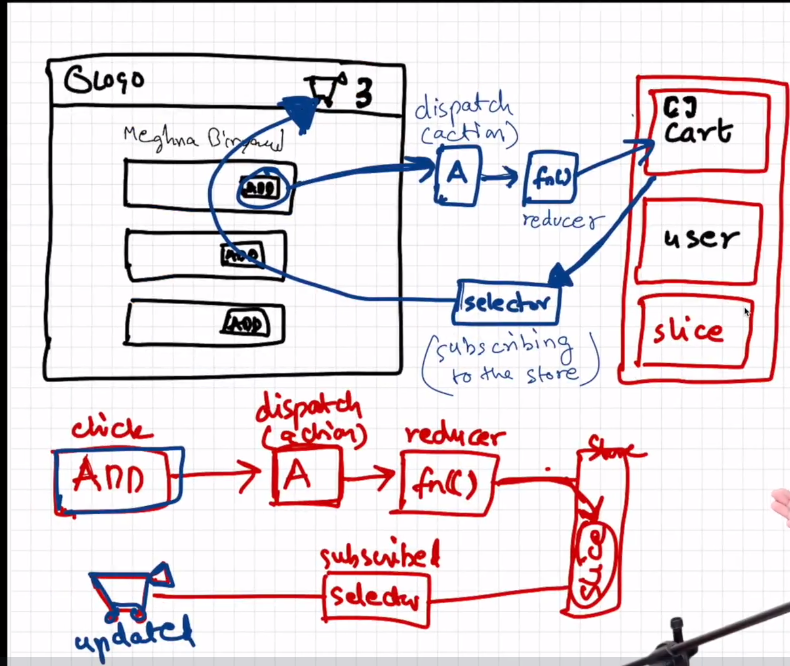 Logo
3
Meghna Binyani
ADD
ADD
ADD
dispatch
(action)
A
fn()
reducer
[]
cart
user
slice
selector
(subscribing
to the store)
click
ADD
dispatch
(action)
A
reducer
fn()
store
slice
subscribed
selector
updated